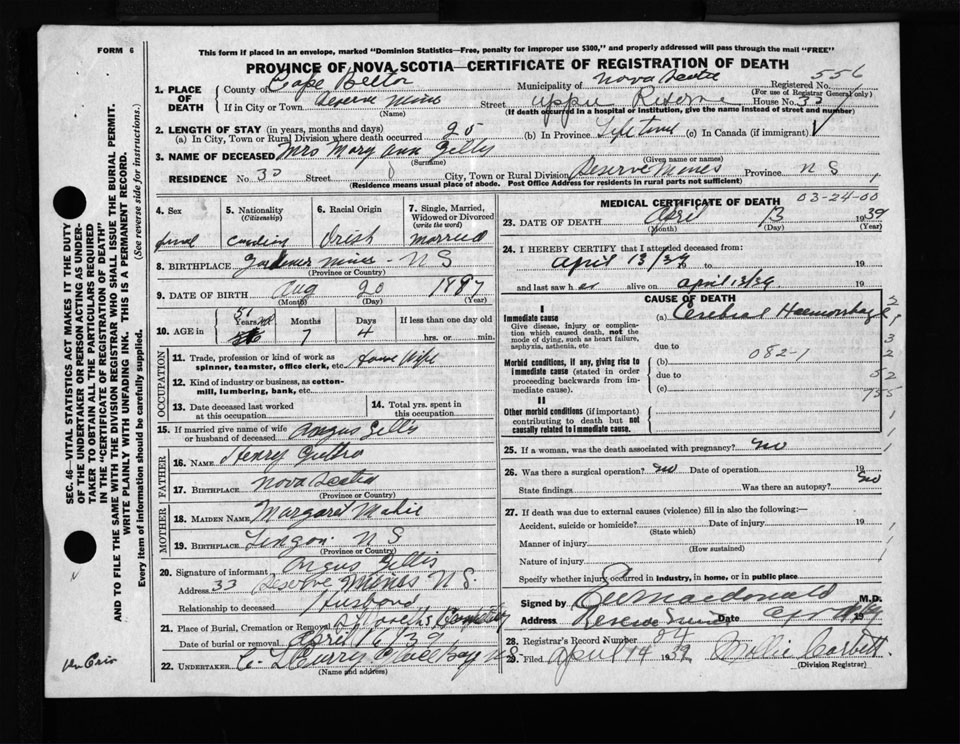 FORM 6
This form if placed in an envelope, marked "Dominion Statistics—Free, penalty for improper use $300," and properly addressed will pass through the mail "FREE"
PROVINCE OF NOVA SCOTIA—CERTIFICATE OF REGISTRATION OF DEATH
556
1. PLACE OF DEATH
County of Cape Breton Municipality of Nova Scotia Registered No.
(For use of Registrar General only)
If in City or Town Reserve Mines Street House No. 33
(Name) (If death occurred in a hospital or institution, give the name instead of street and number)
2. LENGTH OF STAY (in years, months and days)
(a) In City, Town or Rural Division where death occurred 25 (b) In Province Life time (c) In Canada (if immigrant)
3. NAME OF DECEASED Mrs Mary Ann Gillis
(Surname) (Given name or names)
RESIDENCE No. 33 Street City, Town or Rural Division Reserve Mines Province N S
(Residence means usual place of abode. Post Office Address for residents in rural parts not sufficient)
4. Sex
5. Nationality (Citizenship)
6. Racial Origin
7. Single, Married, Widowed or Divorced (write the word)
Canadian Irish Married
8. BIRTHPLACE Gardiner Mines - N S
(Province or Country)
9. DATE OF BIRTH Aug 20 1887
(Month) (Day) (Year)
10. AGE in
Years Months Days If less than one day old
51 7 4 hrs. or min.
OCCUPATION
11. Trade, profession or kind of work as spinner, teamster, office clerk, etc. House Wife
12. Kind of industry or business, as cotton-mill, lumbering, bank, etc.
13. Date deceased last worked at this occupation
14. Total yrs. spent in this occupation
15. If married give name of wife or husband of deceased Angus Gillis
FATHER
16. Name Henry Guthro
17. Birthplace Nova Scotia
(Province or Country)
MOTHER
18. Maiden Name Margaret
19. Birthplace Lingan N S
(Province or Country)
20. Signature of informant Angus Gillis
Address 33 Reserve Mines N S.
Relationship to deceased Husband
21. Place of Burial, Cremation or Removal Cemetery
Date of burial or removal April 16 39
22. UNDERTAKER C. Curry Glace Bay N.S.
(Name and address)
MEDICAL CERTIFICATE OF DEATH 03-24-00
23. DATE OF DEATH April 13 1939
(Month) (Day) (Year)
24. I HEREBY CERTIFY that I attended deceased from:
April 13/39 to 19
and last saw her alive on April 13/39 19
CAUSE OF DEATH
I
Immediate cause
Give disease, injury or complication which caused death, not the mode of dying, such as heart failure, asphyxia, asthenia, etc.
(a) Cerebral Haemorrhage
due to
Morbid conditions, if any, giving rise to immediate cause (stated in order proceeding backwards from immediate cause).
(b) 082-1
due to
(c)
II
Other morbid conditions (if important) contributing to death but not causally related to immediate cause.
25. If a woman, was the death associated with pregnancy? No
26. Was there a surgical operation? No Date of operation 19
State findings Was there an autopsy? No
27. If death was due to external causes (violence) fill in also the following:—
Accident, suicide or homicide? Date of injury 19
(State which)
Manner of injury
(How sustained)
Nature of injury
Specify whether injury occurred in industry, in home, or in public place
Signed by Macdonald M.D.
Address Reserve Mines
28. Registrar's Record Number 24
29. Filed April 14 1939 Mollie Corbett
(Division Registrar)
SEC. 46—VITAL STATISTICS ACT MAKES IT THE DUTY
OF THE UNDERTAKER OR PERSON ACTING AS UNDER-
TAKER TO OBTAIN ALL THE PARTICULARS REQUIRED
IN THE "CERTIFICATE OF REGISTRATION OF DEATH"
AND TO FILE THE SAME WITH THE DIVISION REGISTRAR WHO SHALL ISSUE THE BURIAL PERMIT.
WRITE PLAINLY WITH UNFADING INK. THIS IS A PERMANENT RECORD.
Every item of information should be carefully supplied. (See reverse side for instructions.)